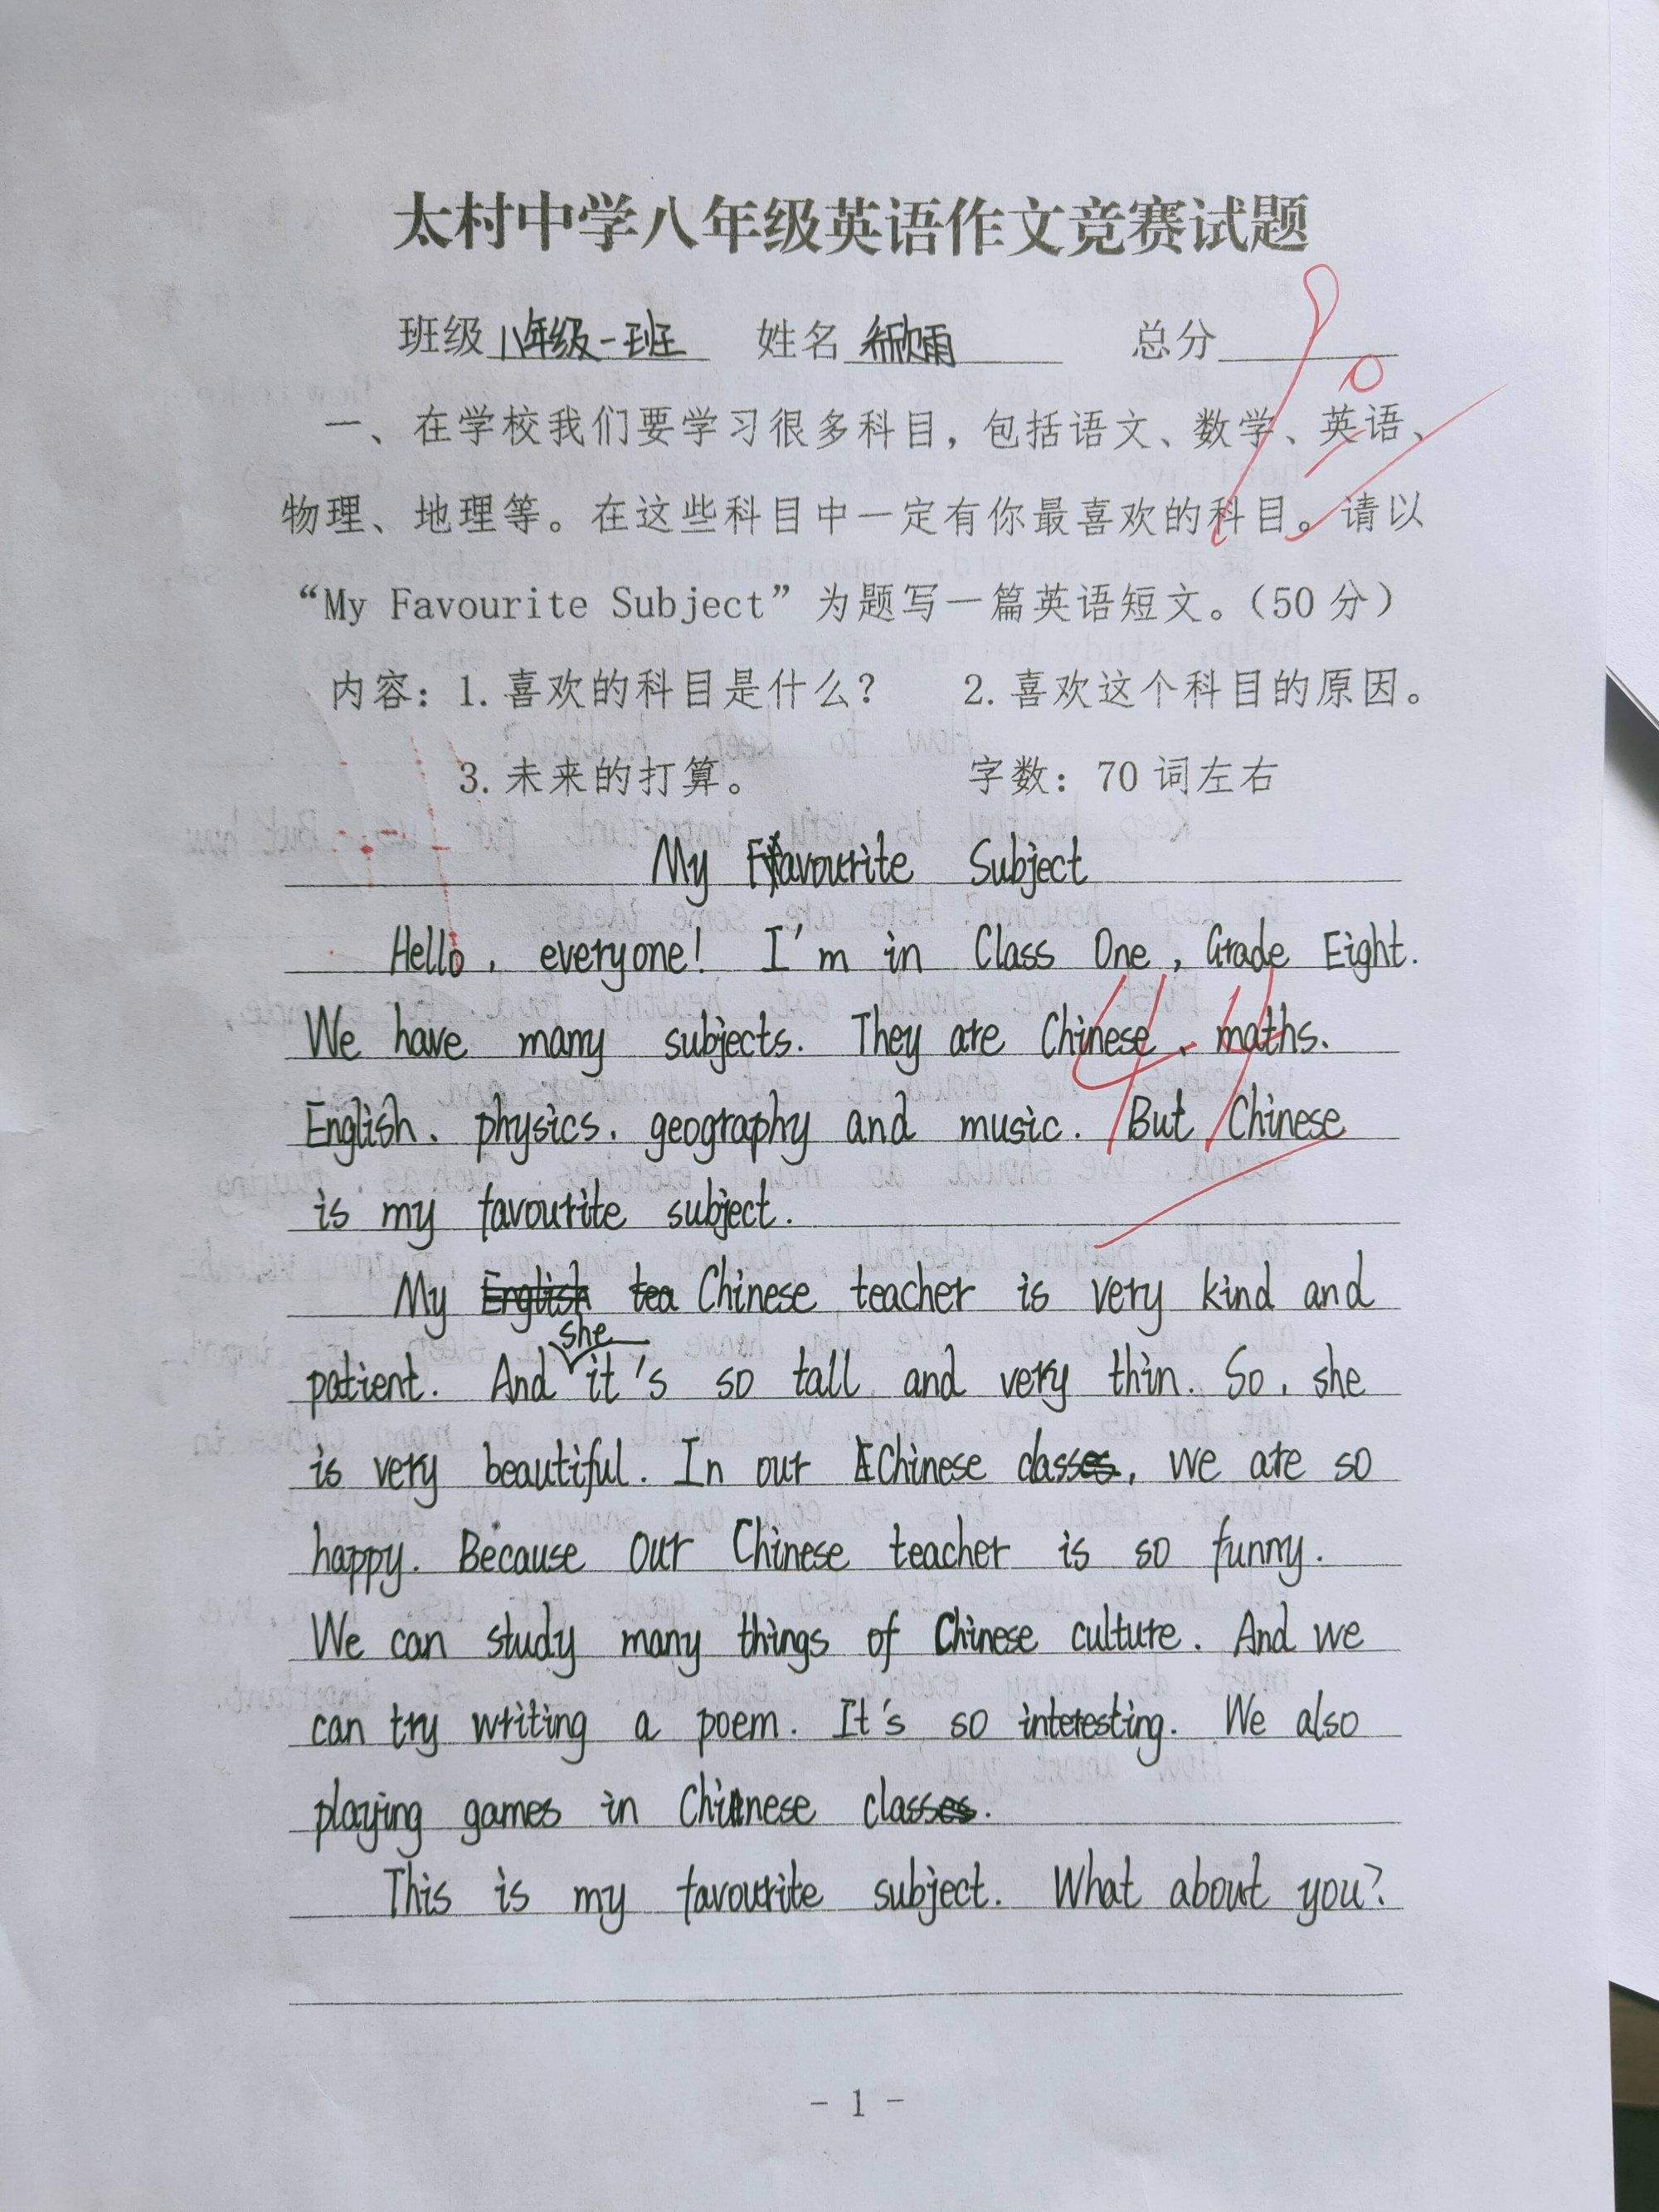 太村中学八年级英语作文竞赛试题
班级 八年级一班 姓名 欣雨 总分 90
一、在学校我们要学习很多科目，包括语文、数学、英语、
物理、地理等。在这些科目中一定有你最喜欢的科目。请以
“My Favourite Subject”为题写一篇英语短文。（50分）
内容：1.喜欢的科目是什么？ 2.喜欢这个科目的原因。
3.未来的打算。 字数：70词左右
My Favourite Subject
Hello, everyone! I'm in Class One, Grade Eight.
We have many subjects. They are Chinese, maths.
English, physics, geography and music. But Chinese
is my favourite subject.
My English tea Chinese teacher is very kind and
she
patient. And it's so tall and very thin. So, she
is very beautiful. In our Chinese classes, we are so
happy. Because our Chinese teacher is so funny.
We can study many things of Chinese culture. And we
can try writing a poem. It's so interesting. We also
playing games in Chinese classes.
This is my favourite subject. What about you?
- 1 -